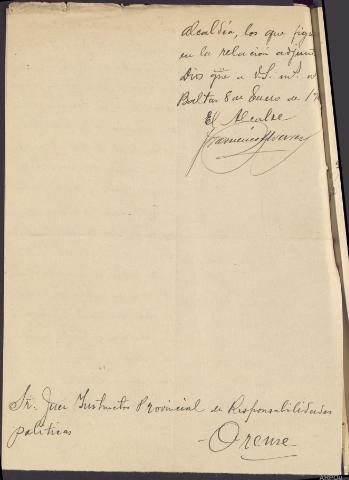 Alcaldía, los que figu
en la relación adjun
Dios gũe a V.S. m.s. a
Baltar 8 de Enero de 19
El Alcalde
Sr. Juez Instructor Provincial de Responsabilidades
políticas
- Orense -